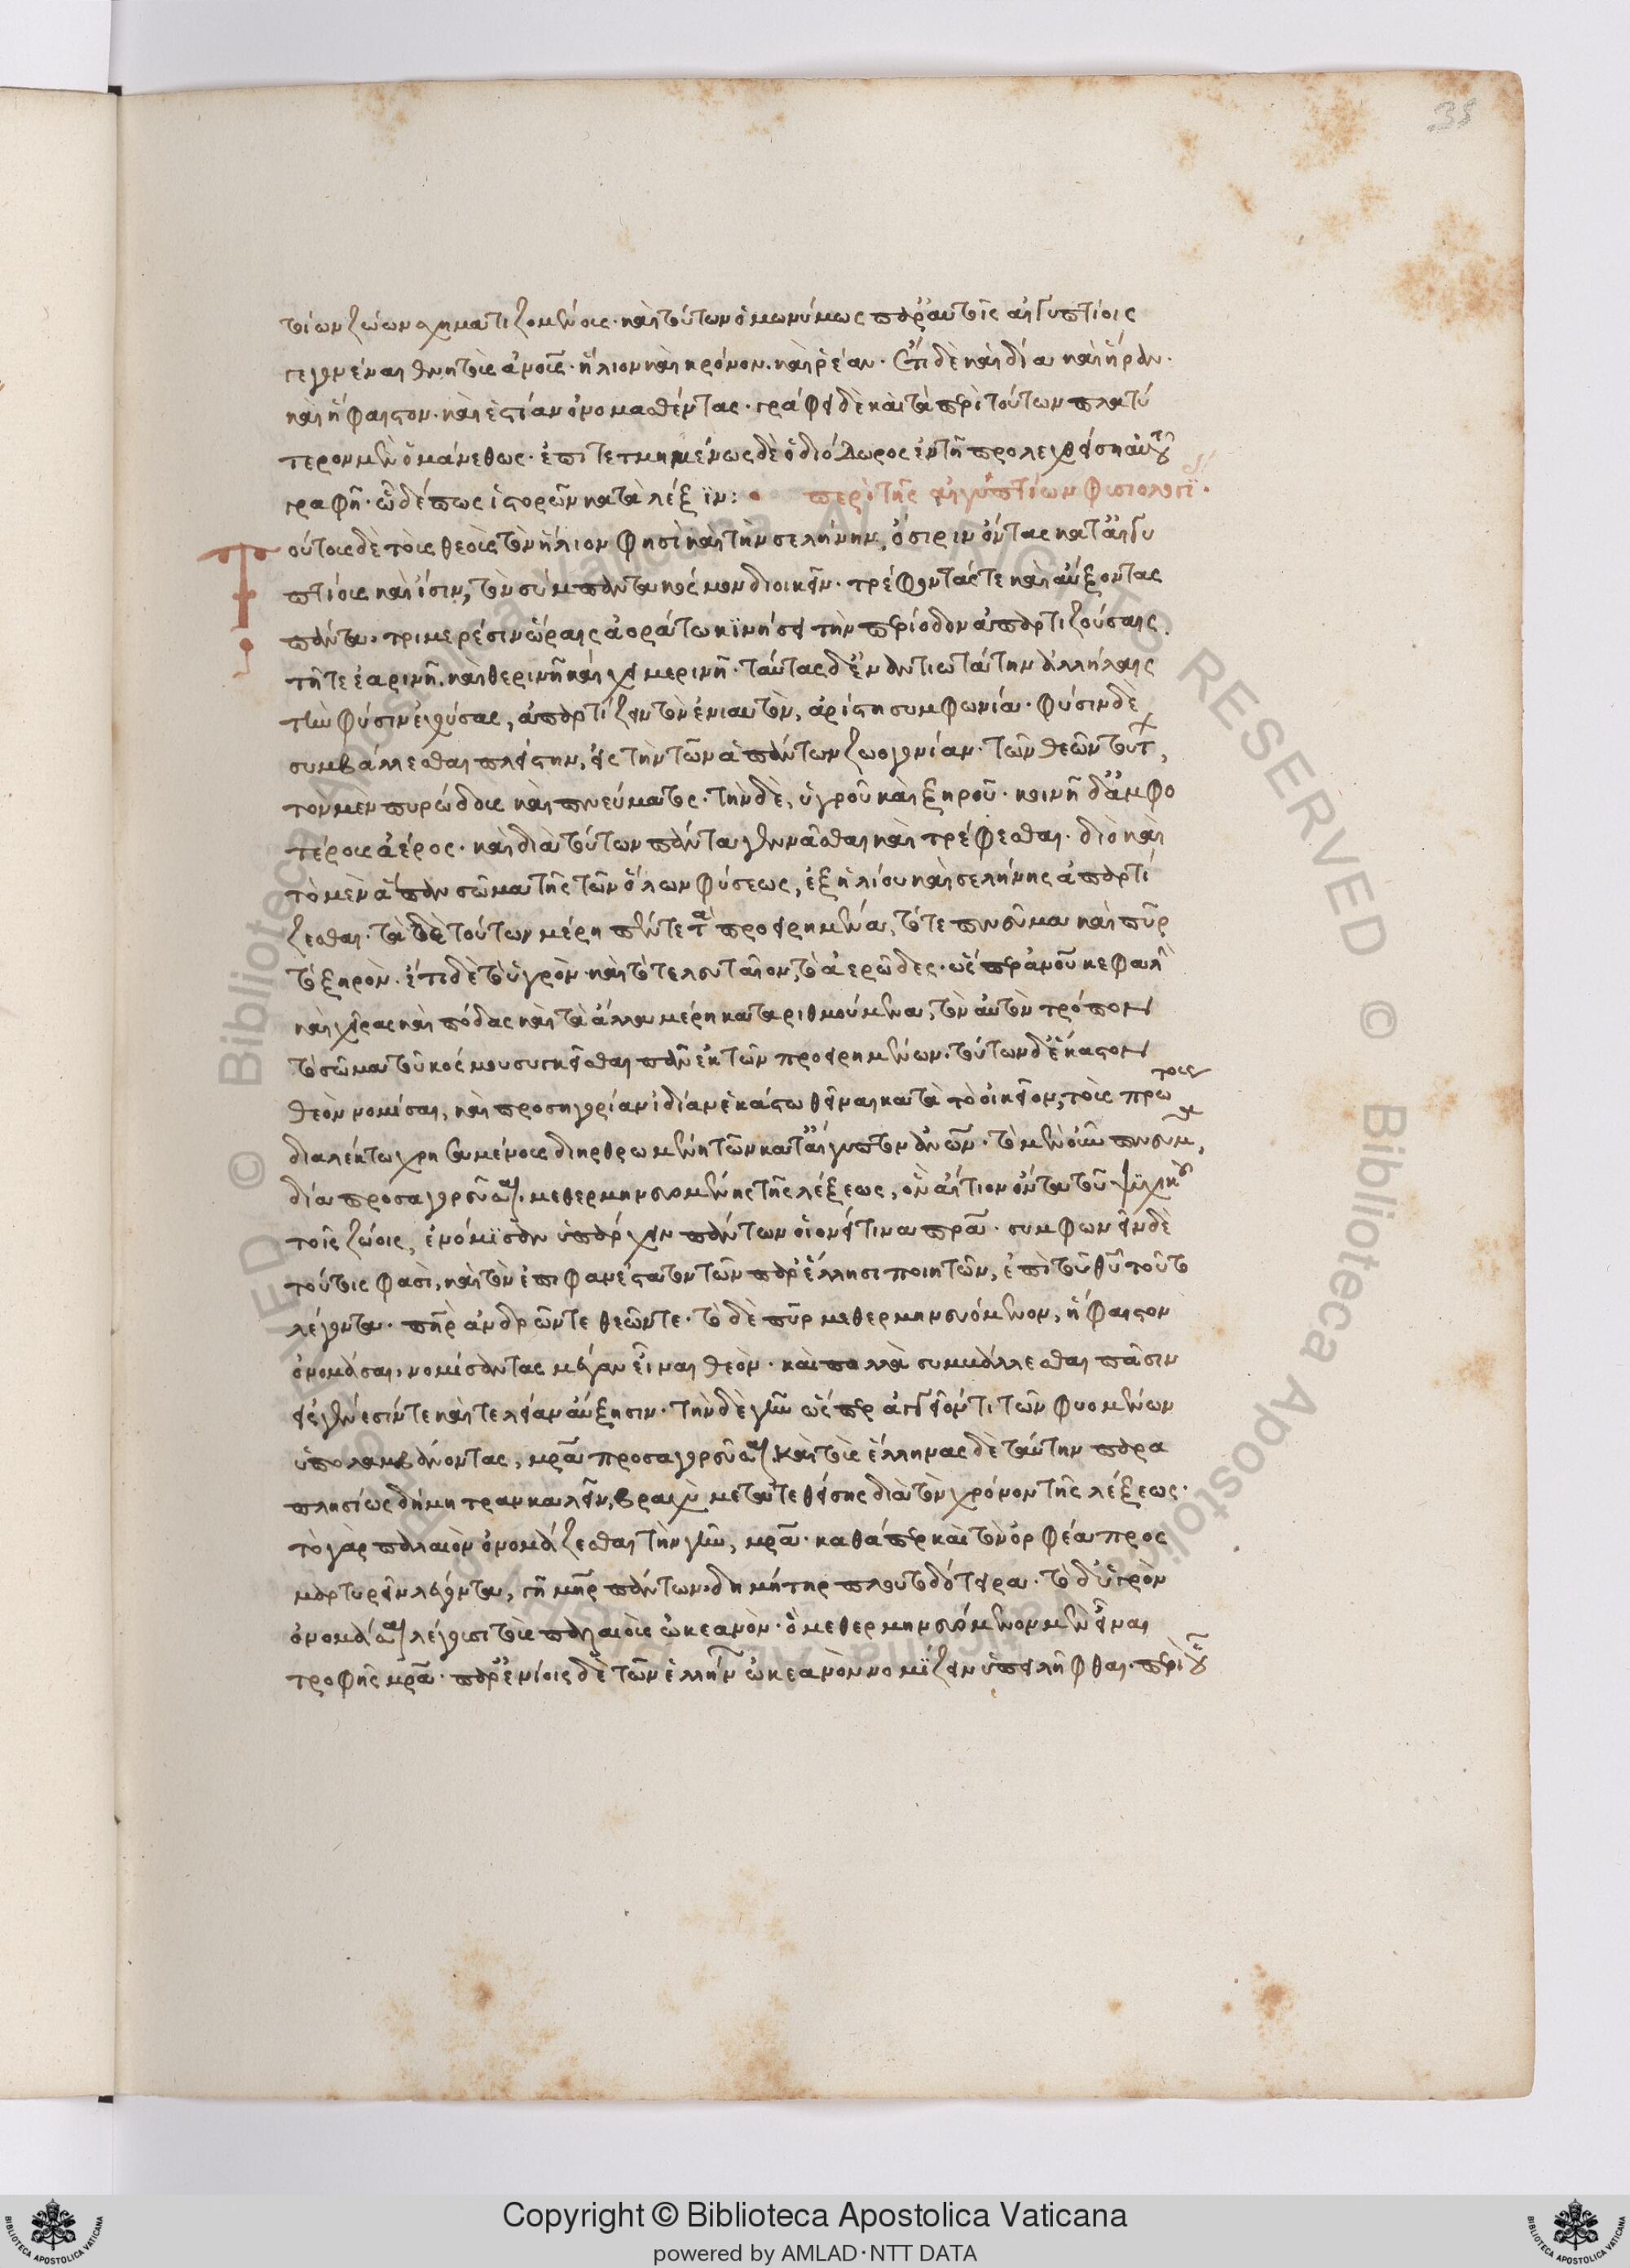 38
τι ὧν ζώων χηματιζομένοις· καὶ τούτων ὁμωνύμως παρ' αὐτοῖς αἰγυπτίοις
γεγονέναι θνητοὺς ἀνοῖς· ἥλιον καὶ κρόνον. καὶ ῥέαν. ἔτι δὲ καὶ δία καὶ ἥραν.
καὶ ἥφαιστον. καὶ ἑστίαν ὀνομασθέντας. γράφει δὲ καὶ τὰ περὶ τούτων πλατύ
τερον μὲν ὁ μάνεθως. ἐπιτετμημένως δὲ ὁ διόδωρος ἐν τῇ προλεχθείσῃ αὐτοῦ
γραφῇ. ὧδέ πως ἱστορῶν κατὰ λέξιν: περὶ τῆς αἰγυπτίων φυσιολογί.
ούτους δὲ τοὺς θεοὺς τὸν ἥλιον φησὶ καὶ τὴν σελήνην, ὄσιριν ὄντας κατ' αἰγυ
πτίους καὶ ἶσιν, τὸν σύμπαντα κόσμον διοικεῖν. τρέφοντάς τε καὶ αὔξοντας
πάντα. τριμερέσιν ὥραις ἀοράτω κινήσει τὴν περίοδον ἀπαρτιζούσαις.
τῇ τε ἐαρινῇ. καὶ θερινῇ καὶ χειμερινῇ. ταύτας δ' ἐναντιωτάτην ἀλλήλαις
τὴν φύσιν ἐχούσας, ἀπαρτίζειν τὸν ἐνιαυτὸν, ἀρίστη συμφωνία. φύσιν δὲ
συμβάλλεσθαι πλείστην, εἰς τὴν τῶν ἁπάντων ζωογονίαν. τῶν θεῶν τούτ,
τον μὲν πυρώδους καὶ πνεύματος. τὴν δὲ, ὑγροῦ καὶ ξηροῦ. κοινῇ δ' ἀμφο
τέρους ἀέρος. καὶ διὰ τούτων πάντα γεννᾶσθαι καὶ τρέφεσθαι. διὸ καὶ
τὸ μὲν ἅπαν σῶμα τῆς τῶν ὅλων φύσεως, ἐξ ἡλίου καὶ σελήνης ἀπαρτί
ζεσθαι. τὰ δὲ τούτων μέρη πέντε τὰ προειρημένα, τό τε πνεῦμα καὶ πῦρ
τὸ ξηρὸν. ἔτι δὲ τὸ ὑγρὸν καὶ τὸ τελευταῖον, τὸ ἀερῶδες. ὥσπερ ἀνοῦ κεφαλὴ
καὶ χεῖρας καὶ πόδας καὶ τὰ ἄλλα μέρη καταριθμούμενα, τὸν αὐτὸν τρόπον
τὸ σῶμα τοῦ κόσμου συγκεῖσθαι πᾶν ἐκ τῶν προειρημένων. τούτων δ' ἕκαστον
θεὸν νομίσαι, καὶ προσηγορίαν ἰδίαν ἑκάστω θεῖναι κατὰ τὸ οἰκεῖον, τοὺς πρώτους
διαλέκτω χρησαμένους διηρθρωμένη τῶν κατ' αἴγυπτον ἀνῶν. τὸ μὲν οὖν πνεῦμα,
δία προσαγορεῦσαι. μεθερμηνευομένης τῆς λέξεως, ὃν αἴτιον ὄντα τοῦ ψυχικοῦ
τοῖς ζώοις, ἐνόμισαν ὑπάρχειν πάντων οἱονεί τινα πρα. συμφωνεῖν δὲ
τούτοις φασὶ, καὶ τὸν ἐπιφανέστατον τῶν παρ' ἕλλησι ποιητῶν, ἐπὶ τοῦ θῦ τούτου
λέγοντα. πηρ ἀνδρῶν τε θεῶν τε. τὸ δὲ πῦρ μεθερμηνευόμενον, ἥφαιστον
ὀνομάσαι. νομίσαντας μέγαν εἶναι θεὸν. καὶ πολλὰ συμβάλλεσθαι πᾶσιν
εἰς γένεσίν τε καὶ τελείαν αὔξησιν. τὴν δὲ γῆν ὥσπερ ἀγγεῖόν τι τῶν φυομένων
ὑπολαμβάνοντας, μρα προσαγορεῦσαι. καὶ τοὺς ἕλληνας δὲ ταύτην παρα
πλησίως δήμητραν καλεῖν, βραχὺ μετατεθείσης διὰ τὸν χρόνον τῆς λέξεως.
τὸ γὰρ παλαιὸν ὀνομάζεσθαι τὴν γῆν, μρα. καθάπερ καὶ τὸν ὀρφέα προς
μαρτυρεῖν λέγοντα, γῆ μηρ πάντων δημήτηρ πλουτοδότειρα. τὸ δ' ὑγρὸν
ὀνομάσαι λέγουσι τοὺς παλαιοὺς ὠκεανὸν. ὃ μεθερμηνευόμενον μὲν εἶναι
τροφῆς μρα. παρ' ἐνίοις δὲ τῶν ἑλλήν ὠκεανὸν νομίζειν ὑπειλῆφθαι. περὶ οὗ
Copyright © Biblioteca Apostolica Vaticana
powered by AMLAD·NTT DATA